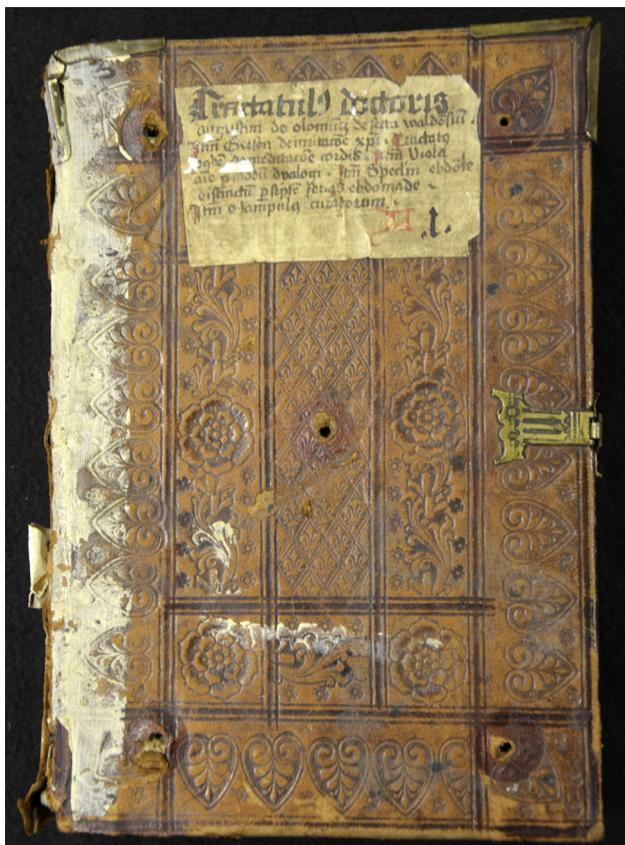 Tractatul9 doctoris
augustini de olomucz de secta waldēsiū.
Itm Gerson de imitacōe xpi. Tractatq
de meditacōe cordis. Itm Viola
aīe p modū dyalogi. Itm Specłm ebdōłe
distinctū p septē ferias ebdomade.
Itm o curatorum.
.I.